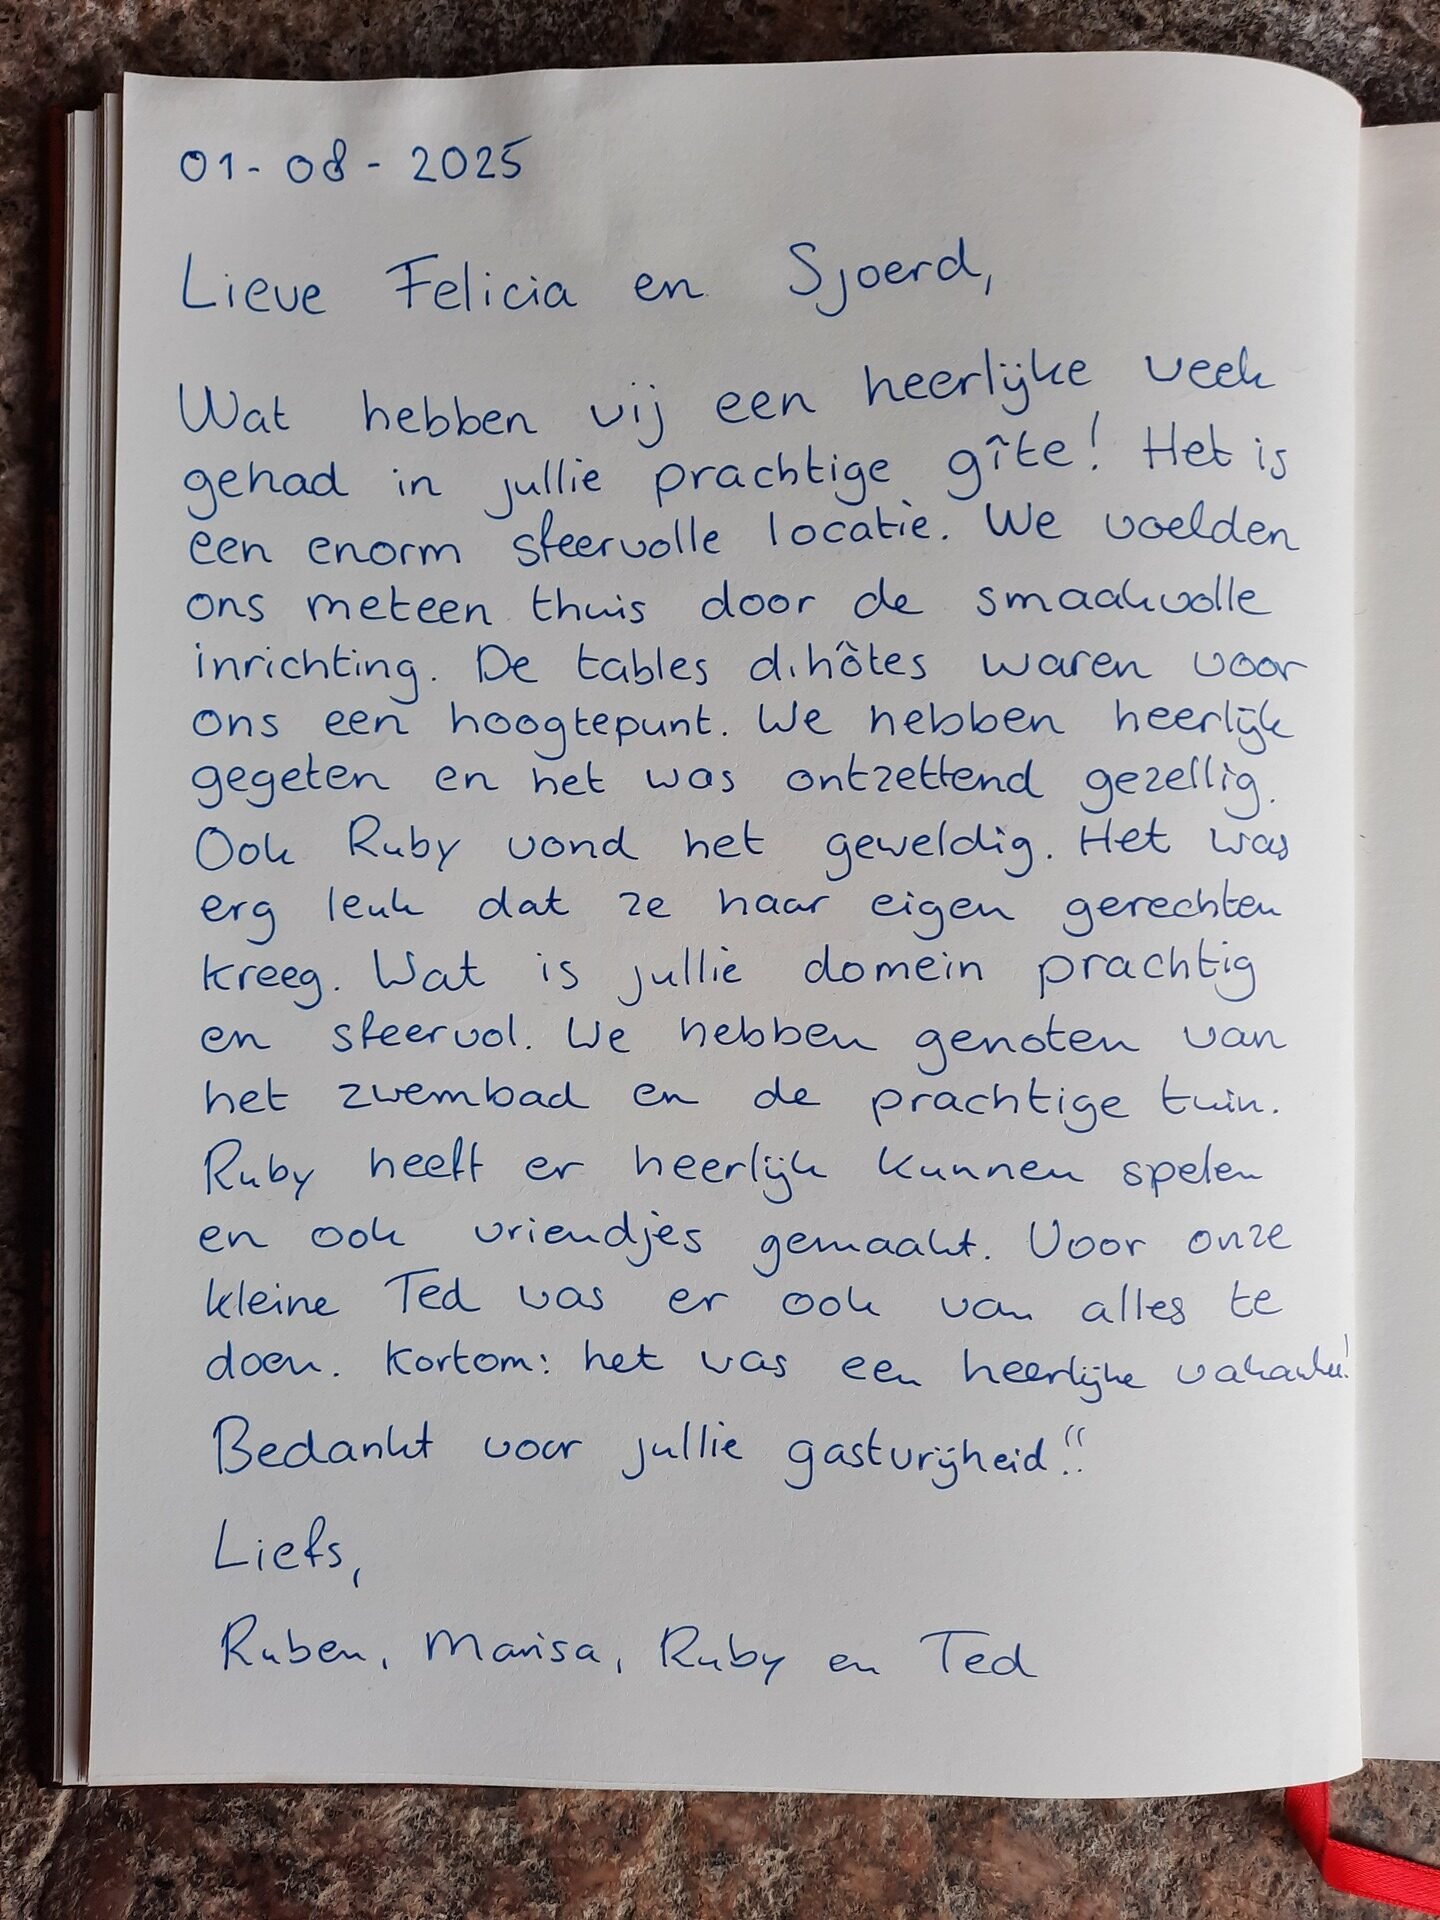 01-08-2025
Lieve Felicia en Sjoerd,
Wat hebben wij een heerlijke week
gehad in jullie prachtige gîte! Het is
een enorm sfeervolle locatie. We voelden
ons meteen thuis door de smaakvolle
inrichting. De tables d'hôtes waren voor
ons een hoogtepunt. We hebben heerlijk
gegeten en het was ontzettend gezellig.
Ook Ruby vond het geweldig. Het was
erg leuk dat ze haar eigen gerechten
kreeg. Wat is jullie domein prachtig
en sfeervol. We hebben genoten van
het zwembad en de prachtige tuin.
Ruby heeft er heerlijk kunnen spelen
en ook vriendjes gemaakt. Voor onze
kleine Ted was er ook van alles te
doen. Kortom: het was een heerlijke vakantie!
Bedankt voor jullie gastvrijheid!!
Liefs,
Ruben, Marisa, Ruby en Ted